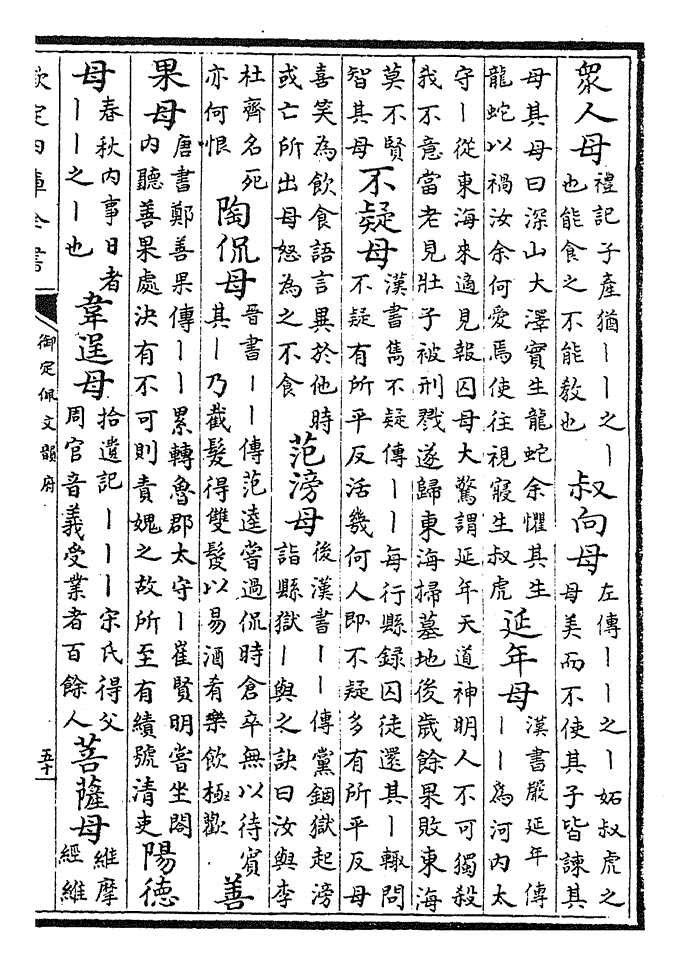 眾人母
禮記子產猶丨丨之丨
也能食之不能教也
叔向母
左傳丨丨之丨妬叔虎之
母美而不使其子皆諫其
母其母曰深山大澤實生龍蛇余懼其生
龍蛇以禍汝余何愛焉使往視寢生叔虎
延年母
漢書嚴延年傳
丨丨為河內太
守丨從東海來適見報囚母大驚謂延年天道神明人不可獨殺
我不意當老見壯子被刑戮遂歸東海掃墓地後歲餘果敗東海
莫不賢
智其母
不疑母
漢書雋不疑傳丨丨每行縣錄囚徒還其丨輒問
不疑有所平反活幾何人即不疑多有所平反母
喜笑為飲食語言異於他時
或亡所出母怒為之不食
范滂母
後漢書丨丨傳黨錮獄起滂
詣縣獄丨與之訣曰汝與李
杜齊名死
亦何恨
陶侃母
晉書丨丨傳范逵嘗過侃時倉卒無以待賓
其丨乃截髮得雙髲以易酒肴樂飲極歡
善
果母
唐書鄭善果傳丨丨累轉魯郡太守丨崔賢明嘗坐閤
內聽善果處決有不可則責媿之故所至有績號清吏
陽德
母
春秋內事日者
丨丨之丨也
韋逞母
拾遺記丨丨丨宋氏得父
周官音義受業者百餘人
菩薩母
維摩
經維
欽定四庫全書
御定佩文韻府
五十